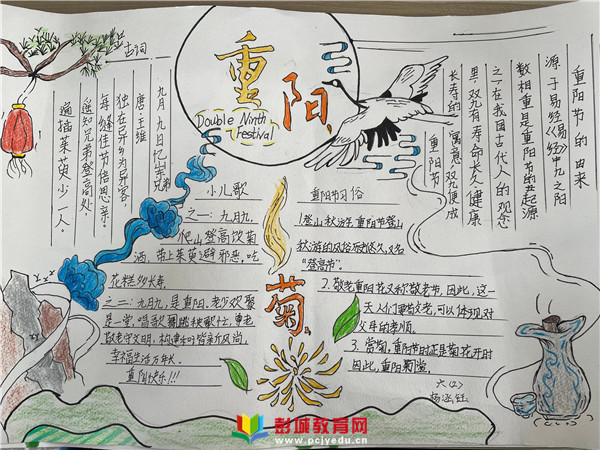 重阳
Double Ninth
Festival
重阳节的由来
源于易经《易经》中九之阳
数相重是重阳节的起源
之一在我国古代人的观念
里,双九有寿命长人健康
长寿的寓意双九便成
重阳节
古词
九月九日忆山东兄弟
唐王维
独在异乡为异客,
每逢佳节倍思亲。
遥知兄弟登高处
遍插茱萸少一人。
小儿歌
之一:九月九,
爬山登高饮菊
酒,带上茱萸避邪恶,吃
花糕多长寿
之二:九月九,是重阳,老少欢聚
是一堂,唱歌
幸福生活万年长,
重阳快乐!!!
菊
重阳节习俗
1登山秋游重阳节登山
秋游的风俗历史悠久,又名
“登高节”。
2、敬老重阳花又称敬老节,因此,这一
天人们更敬老,可以体现对
父母的孝顺。
3、赏菊,重阳节时正是菊花开时
因此,重阳菊赏
六(2)
彭城教育网
www.pcjyedu.cn